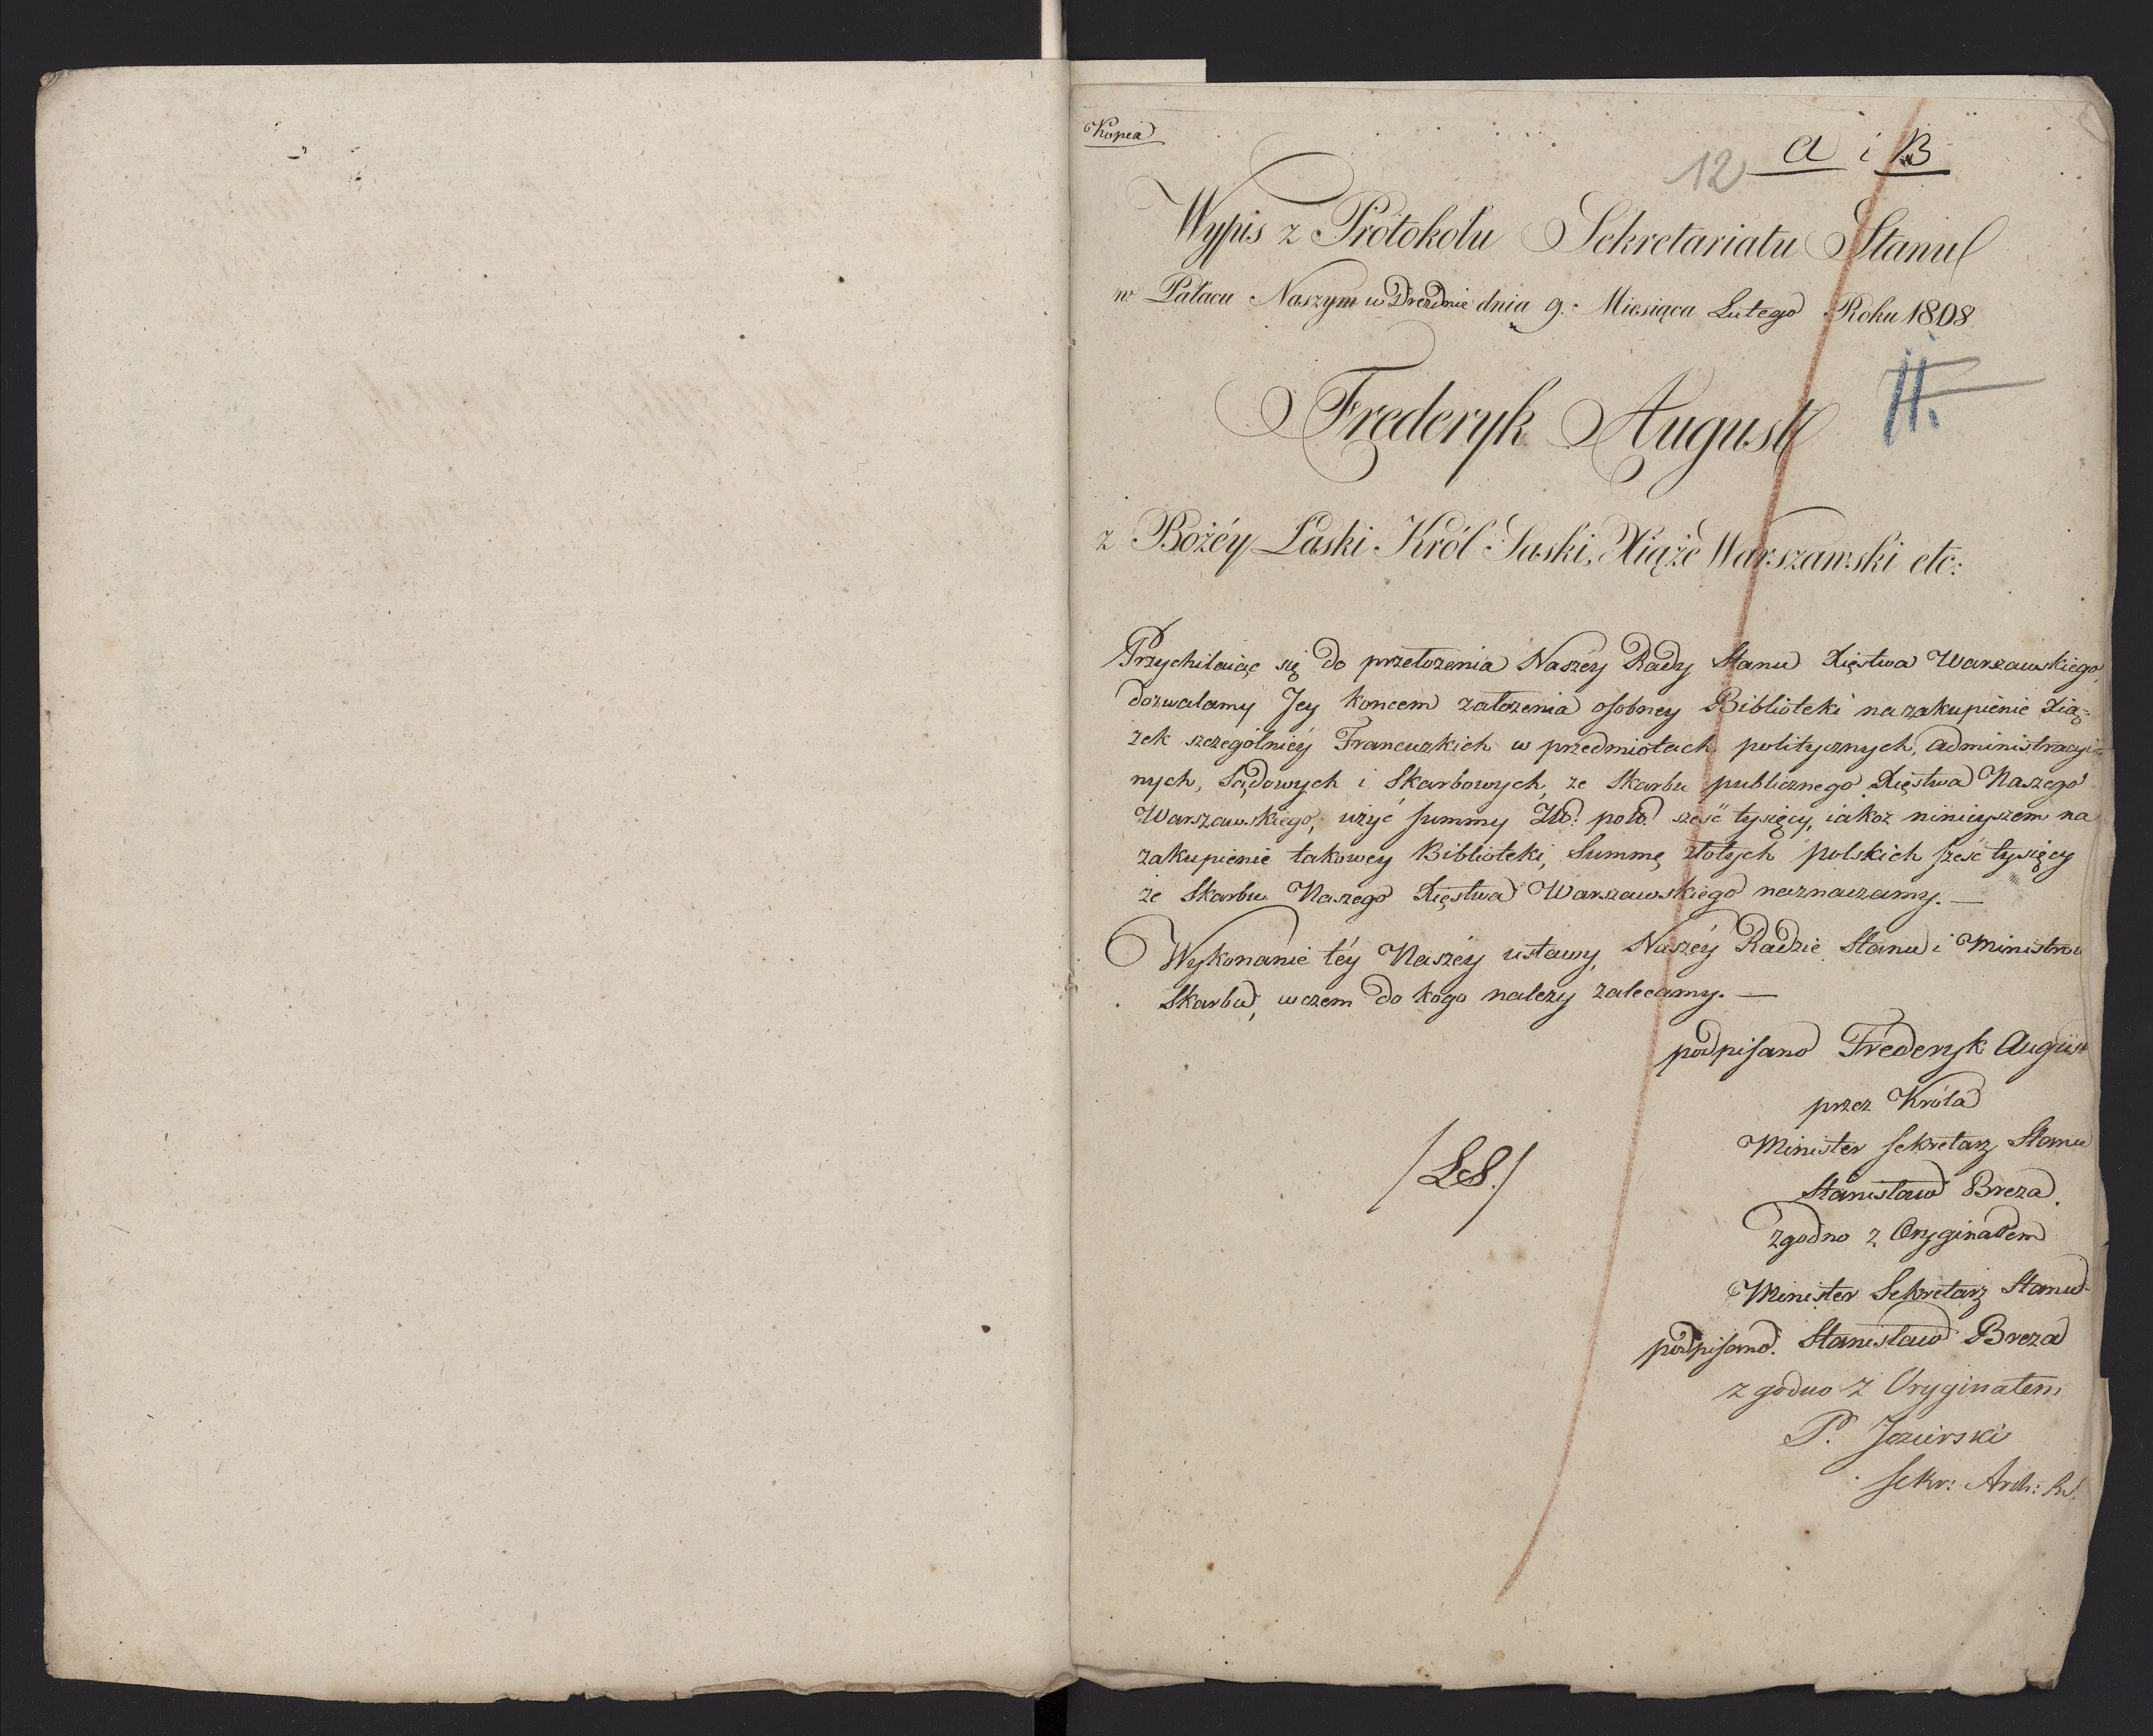 Kopia
12 a i B
Wypis z Protokołu Sekretariatu Stanu
w Pałacu Naszym w Dreźdnie dnia 9. Miesiąca Lutego Roku 1808
II.
Frederyk August
z Bożéy Łaski Król Saski, Xiąże Warszawski etc:
Przychilaiąc się do przełożenia Naszey Rady Stanu Xięstwa Warszawskiego,
dozwalamy Jey koncem założenia osobney Biblioteki na zakupienie Xią=
żek szczególniéy Francuzkich w przedmiotach politycznych, administracyi
nych, Sądowych i Skarbowych, ze Skarbu publicznego Xięstwa Naszego
Warszawskiego, użyć summy Zło: pols. sześć tysięcy, iakoż ninieyszem na
zakupienie takowey Biblioteki, Summę złotych polskich sześć tysięcy
ze Skarbu Naszego Xięstwa Warszawskiego naznaczamy. —
Wykonanie téy Naszéy ustawy, Naszéy Radzie Stanu i Ministrowi
Skarbu, w czem do kogo należy zalecamy. —
podpisano Fréderyk August
przez Króla
Minister Sekretarz Stanu
/LS./
Stanisław Breza.
Zgodno z Oryginałem
Minister Sekretarz Stanu
podpisano. Stanisław Breza
zgodno z Oryginałem
P. Jozierski
Sekr: Arch: R.S.